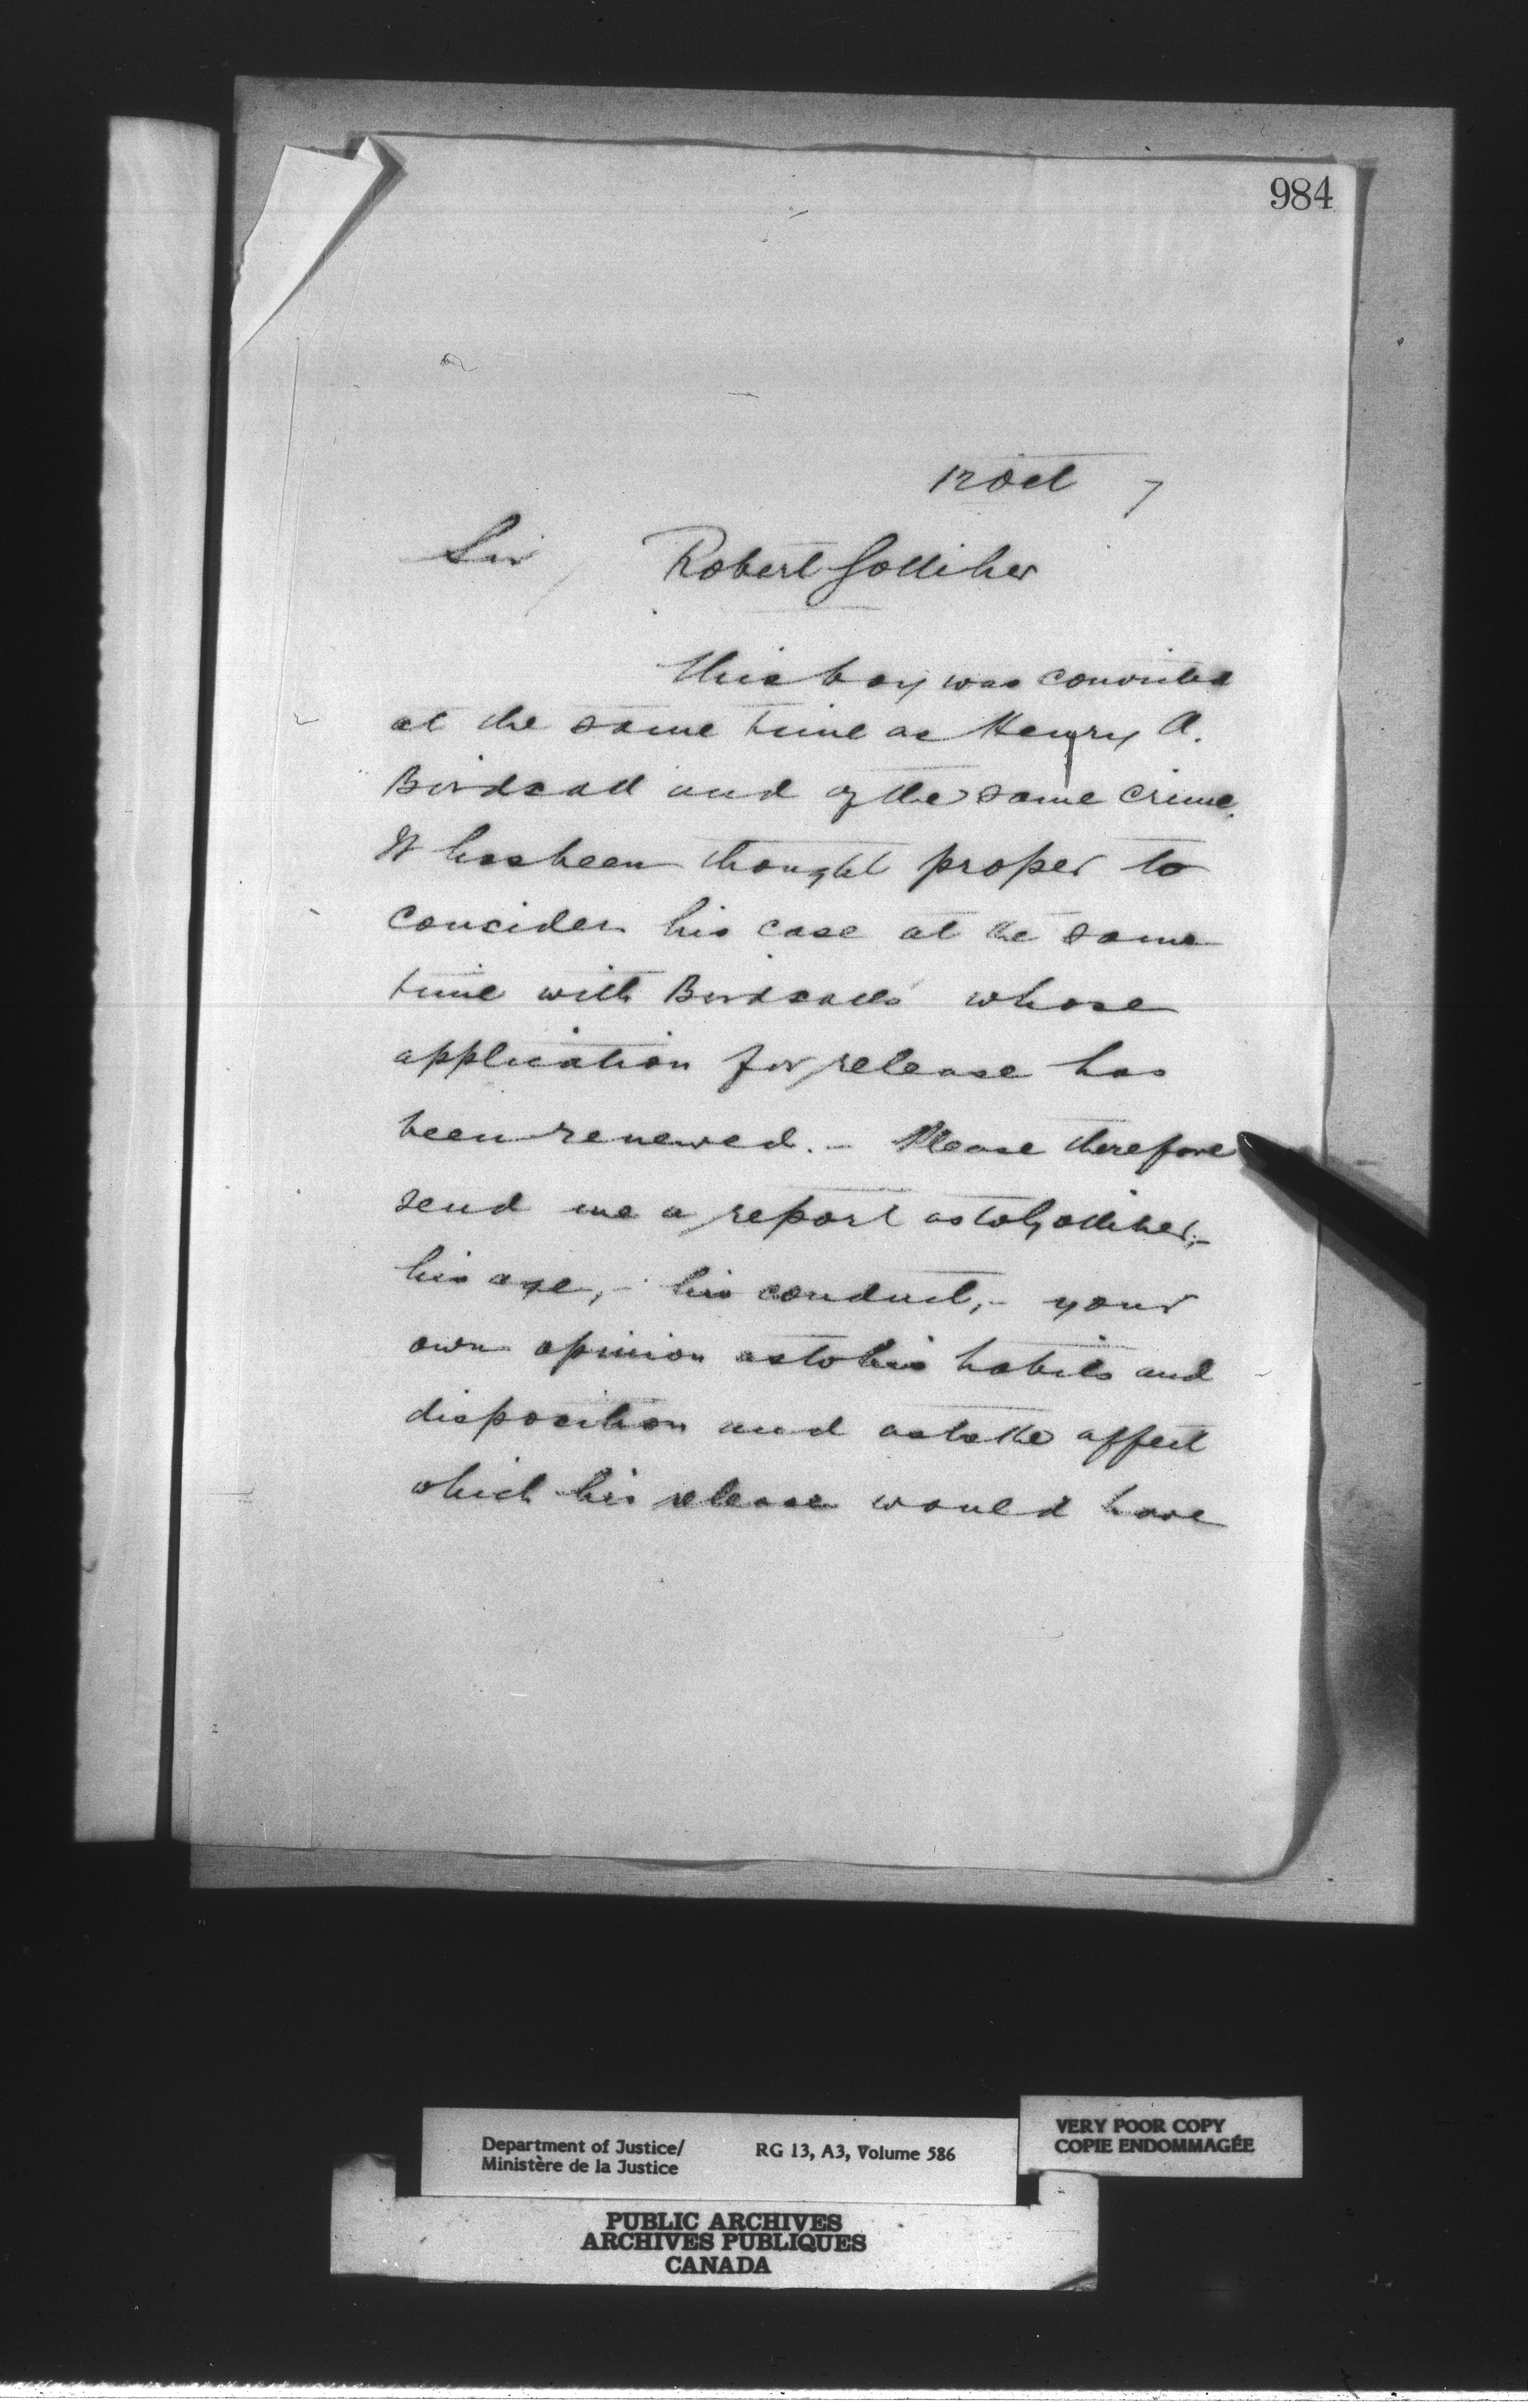 984
12 Oct 7
Sir Robert Golliher
This boy was convicted
at the same time as Henry A.
Birdsall and of the same crime.
It has been thought proper to
concider his case at the same
time with Birdsalls whose
application for release has
been renewed. - Please therefore
send me a report as to Golliher, -
his age, - his conduct, - your
own opinion as to his habits and
disposition and as to the affect
which his release would have
Department of Justice/
Ministère de la Justice
RG 13, A3, Volume 586
VERY POOR COPY
COPIE ENDOMMAGÉE
PUBLIC ARCHIVES
ARCHIVES PUBLIQUES
CANADA